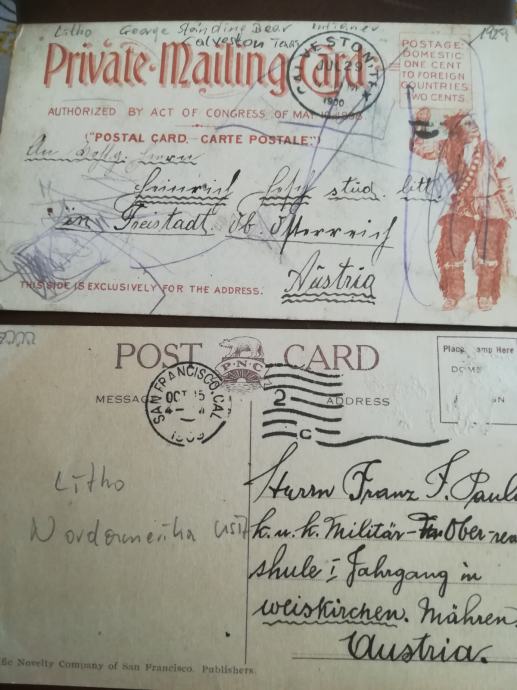 Litho George Standing Bear Indianer 1929
Galveston Texas
Private Mailing Card
GALVESTON, TEX.
JUL 29
1900
POSTAGE:
DOMESTIC
ONE CENT
TO FOREIGN
COUNTRIES
TWO CENTS.
AUTHORIZED BY ACT OF CONGRESS OF MAY 19, 1898
("POSTAL CARD.-CARTE POSTALE.")
An Herrn
Heinrich stud. litt.
in Freistadt. Ob. Österreich
Austria
THIS SIDE IS EXCLUSIVELY FOR THE ADDRESS.
POST CARD
P-N-C
Place amp Here
DOME
GN
MESSAG
ADDRESS
SAN FRANCISCO, CAL.
OCT 15
1909
2
C
Litho
Nordamerika USA
Herrn Franz F. Paul
k. u. k. Militär-Ober-rea
shule I Jahrgang in
weiskirchen. Mähren.
Austria.
fic Novelty Company of San Francisco. Publishers.